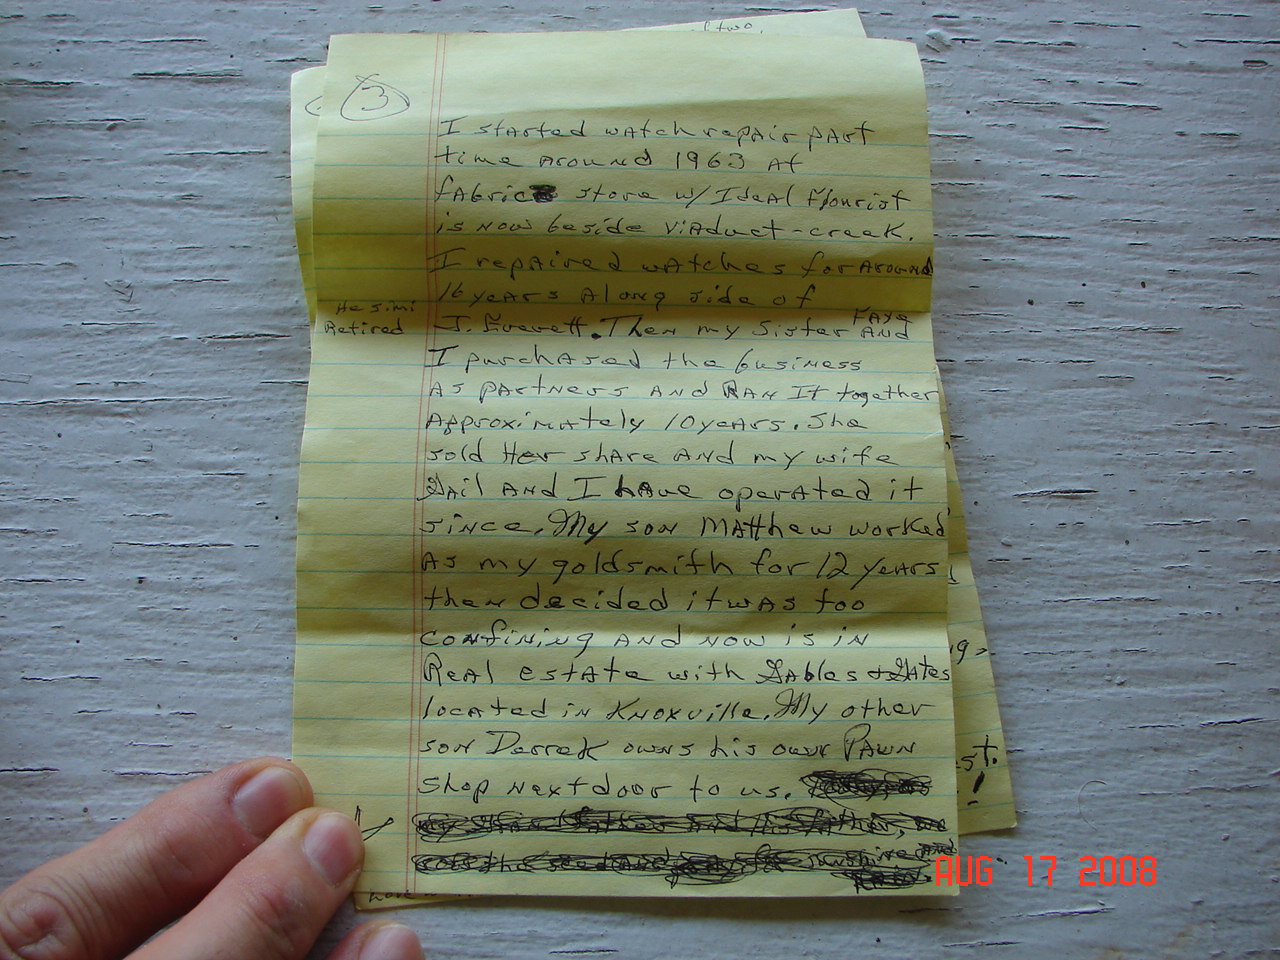 two,
3
I started watch repair part
time around 1963 at
fabric store w/ Ideal Flourist
is now beside viaduct-creek.
I repaired watches for around
16 years along side of
He simi
Retired
J. Everett. Then my sister Faye and
I purchased the business
as partners and Ran It together
Approximately 10 years. She
sold Her share and my wife
Gail and I have operated it
since. My son Matthew worked
as my goldsmith for 12 years
then decided it was too
confining and now is in
Real estate with Gables & Gates
located in Knoxville. My other
son Derrek owns his own Pawn
shop next door to us.
st.
!
AUG 17 2008